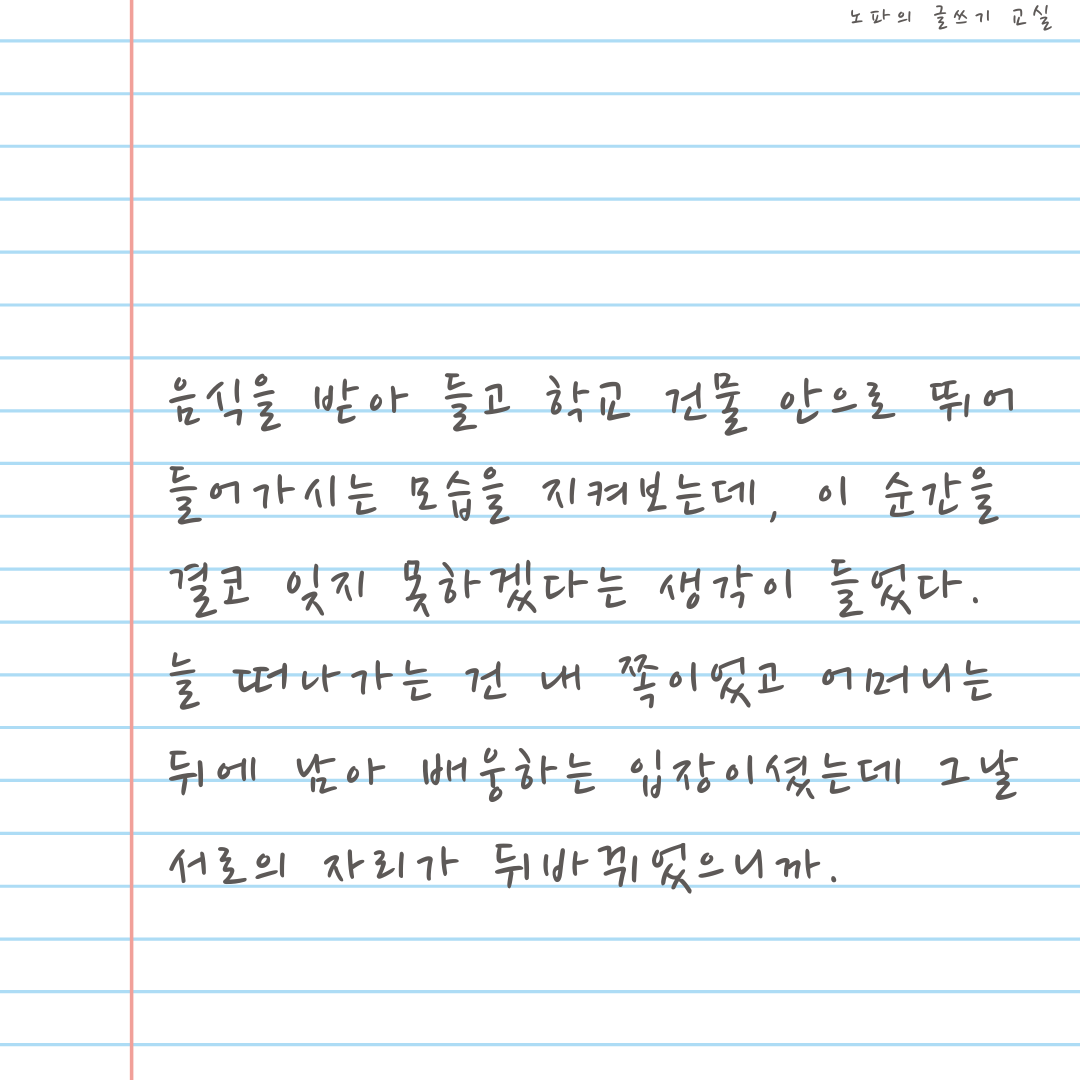 노파의 글쓰기 교실
음식을 받아 들고 학교 건물 안으로 뛰어
들어가시는 모습을 지켜보는데, 이 순간을
결코 잊지 못하겠다는 생각이 들었다.
늘 떠나가는 건 내 쪽이었고 어머니는
뒤에 남아 배웅하는 입장이셨는데 그날
서로의 자리가 뒤바뀌었으니까.